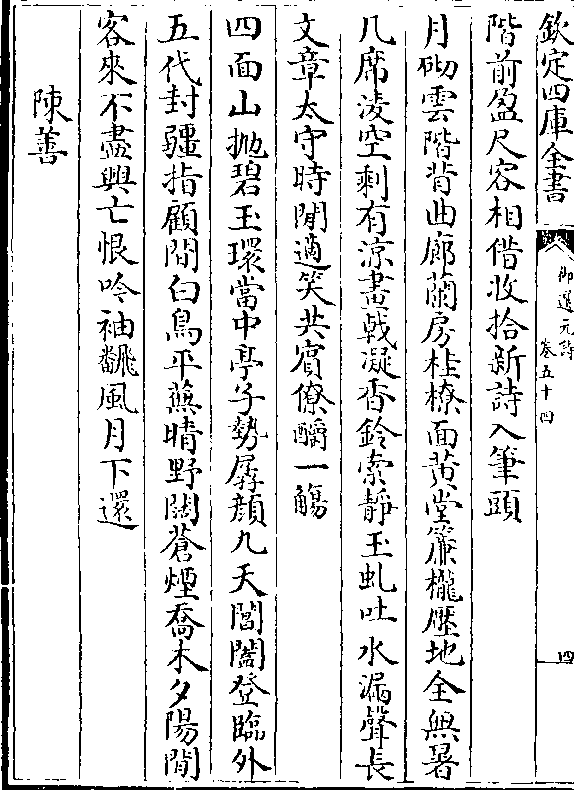 欽定四庫全書
御選元詩
卷五十四
四
階前盈尺容相借收拾新詩入筆頭
月砌雲階背曲廊蘭房桂橑面黄堂簾櫳壓地全無暑
几席凌空剩有涼畫戟凝香鈴索靜玉虬吐水漏聲長
文章太守時閒適笑共賓僚酹一觴
四面山抛碧玉環當中亭子勢孱顔九天閶闔登臨外
五代封疆指顧間白鳥平蕪晴野闊蒼煙喬木夕陽閒
客來不盡興亡恨吟袖飜風月下還
陳善